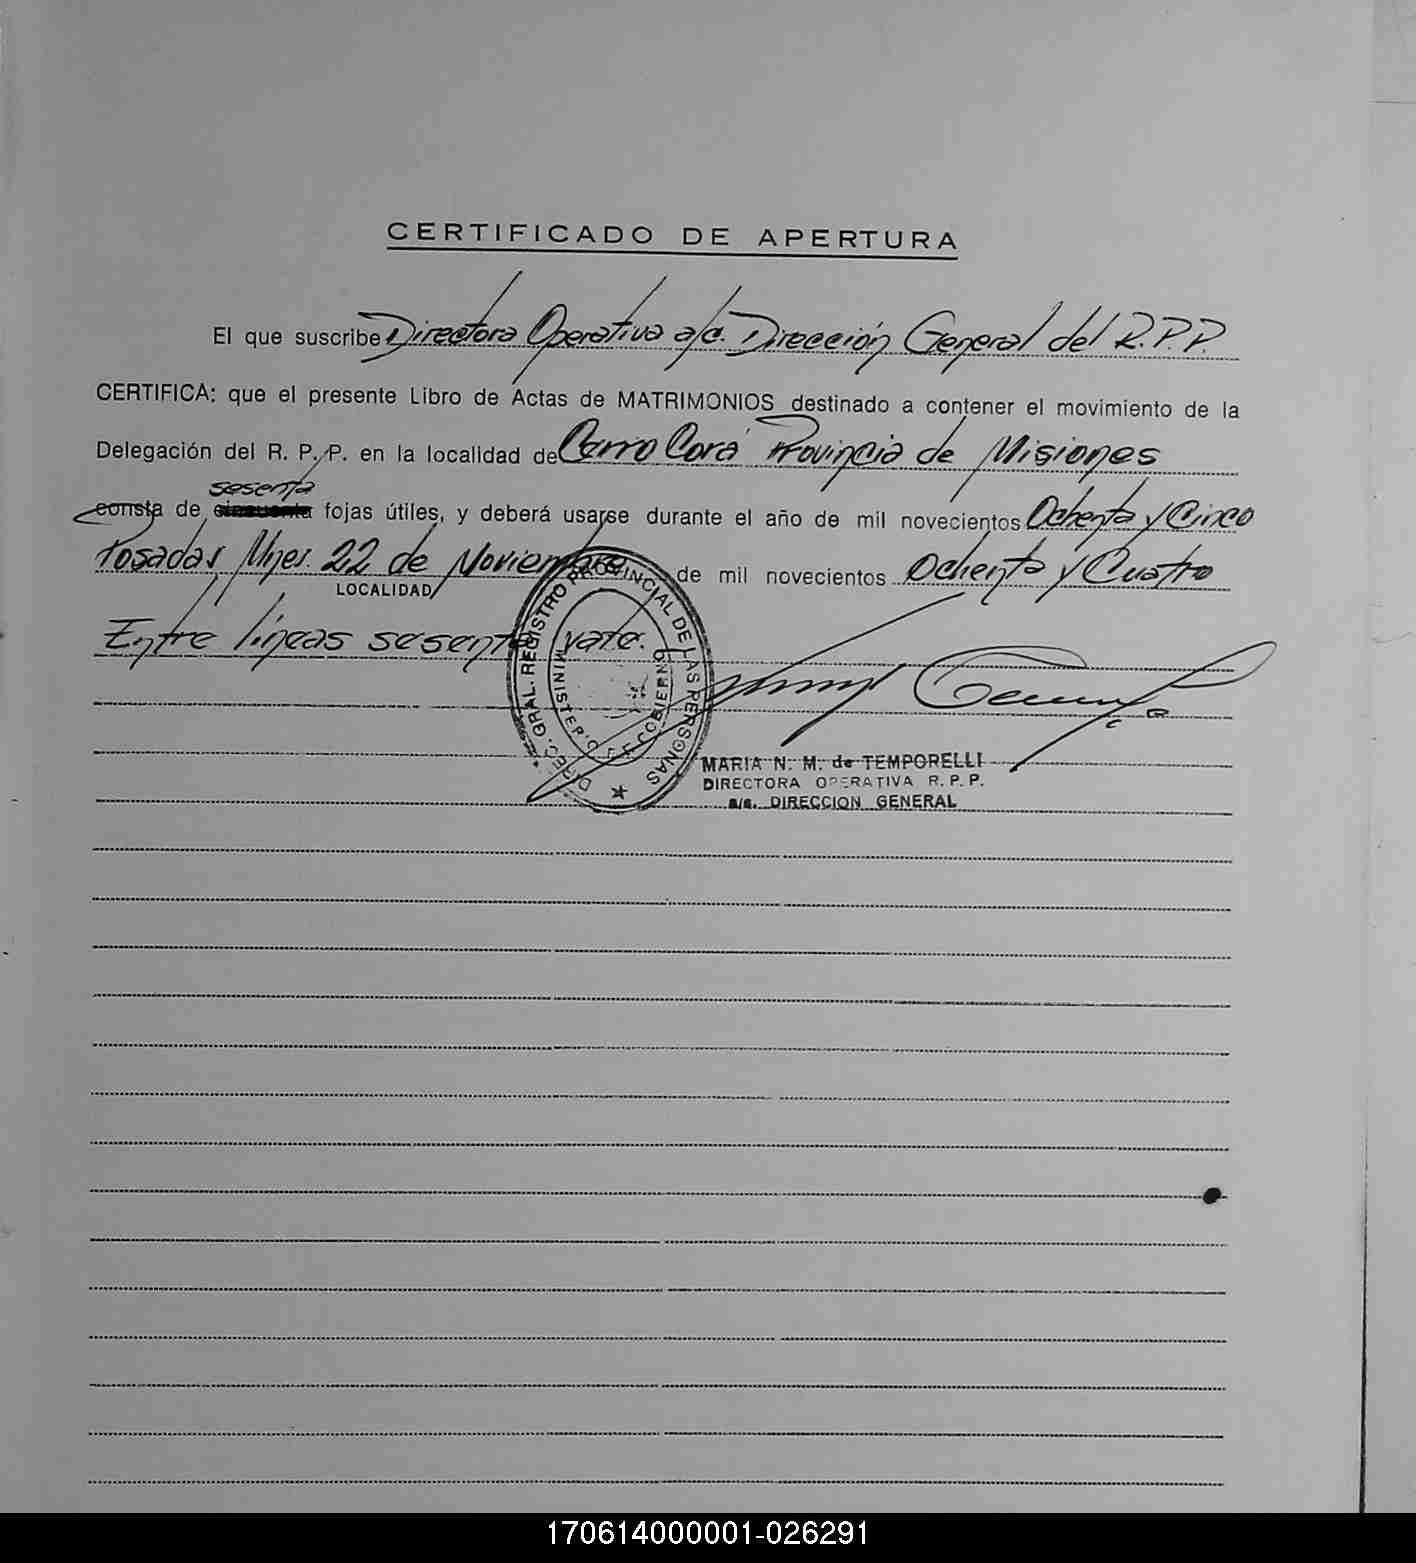 CERTIFICADO DE APERTURA
El que suscribe Directora Operativa a/c. Dirección General del R.P.P.
CERTIFICA: que el presente Libro de Actas de MATRIMONIOS destinado a contener el movimiento de la
Delegación del R. P. P. en la localidad de Cerro Corá Provincia de Misiones
sesenta
consta de cincuenta fojas útiles, y deberá usarse durante el año de mil novecientos Ochenta y Cinco
Posadas Mnes. 22 de Noviembre de mil novecientos Ochenta y Cuatro
LOCALIDAD
Entre líneas sesenta vale.
DIREC. GRAL. REGISTRO PROVINCIAL DE LAS PERSONAS
MINISTERIO DE GOBIERNO
MARIA N. M. de TEMPORELLI
DIRECTORA OPERATIVA R. P. P.
a/c. DIRECCION GENERAL
170614000001-026291